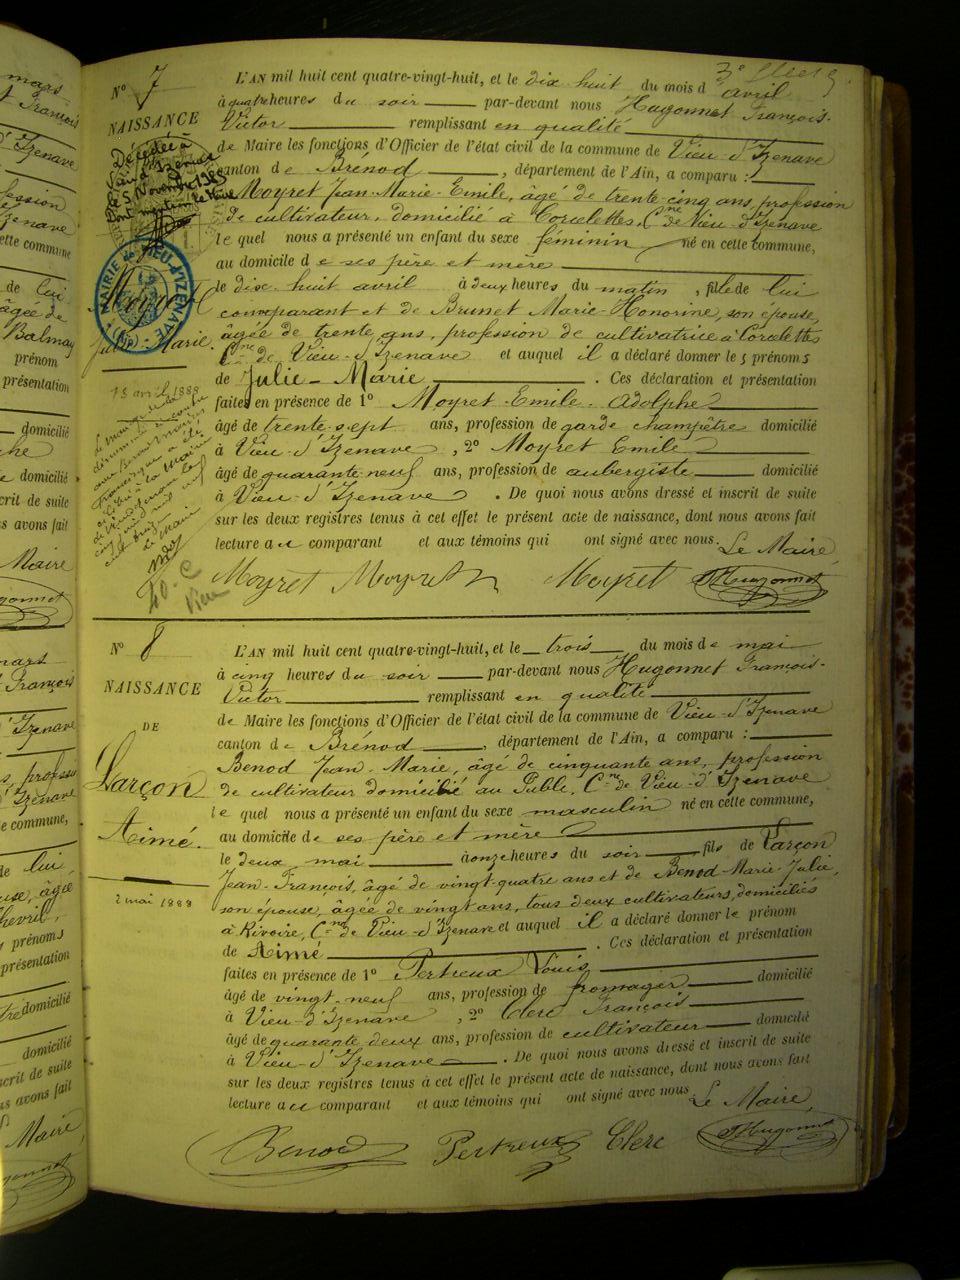 3e
No 7
NAISSANCE
L'AN mil huit cent quatre-vingt-huit, et le dix huit du mois d'avril
à quatre heures du soir par-devant nous Hugonnet François-
Victor remplissant en qualité
de Maire les fonctions d'Officier de l'état civil de la commune de Vieu-d'Izenave
canton de Brénod, département de l'Ain, a comparu :
Moyret Jean-Marie-Emile, âgé de trente-cinq ans, profession
de cultivateur, domicilié à Corcelettes, Cne de Vieu-d'Izenave
lequel nous a présenté un enfant du sexe féminin né en cette commune,
au domicile de ses père et mère
le dix huit avril à deux heures du matin, fille de lui
comparant et de Brunet Marie-Honorine, son épouse,
âgée de trente ans, profession de cultivatrice à Corcelettes
Cne de Vieu-d'Izenave et auquel il a déclaré donner les prénoms
de Julie-Marie. Ces déclaration et présentation
faites en présence de 1o Moyret Emile-Adolphe
âgé de trente-sept ans, profession de garde champêtre domicilié
à Vieu-d'Izenave, 2o Moyret Emile
âgé de quarante-neuf ans, profession de aubergiste domicilié
à Vieu-d'Izenave. De quoi nous avons dressé et inscrit de suite
sur les deux registres tenus à cet effet le présent acte de naissance, dont nous avons fait
lecture au comparant et aux témoins qui ont signé avec nous. Le Maire
Moyret Moyret Moyret Hugonnet
Décédée à
Vieu d'Izenave
le 5 Novembre 1983
Dont mention, le Maire
MAIRIE de VIEU-D'IZENAVE
(AIN)
Moyret
Julie-Marie.
18 avril 1888
No 8
NAISSANCE
DE
Larçon
Aimé.
2 mai 1888
L'AN mil huit cent quatre-vingt-huit, et le trois du mois de mai
à cinq heures du soir par-devant nous Hugonnet François-
Victor remplissant en qualité
de Maire les fonctions d'Officier de l'état civil de la commune de Vieu-d'Izenave
canton de Brénod, département de l'Ain, a comparu :
Benod Jean-Marie, âgé de cinquante ans, profession
de cultivateur domicilié au Poble, Cne de Vieu-d'Izenave
lequel nous a présenté un enfant du sexe masculin né en cette commune,
au domicile de ses père et mère
le deux mai à onze heures du soir fils de Larçon
Jean-François, âgé de vingt-quatre ans et de Benod Marie-Julie,
son épouse, âgée de vingt ans, tous deux cultivateurs, domiciliés
à Rivoire, Cne de Vieu-d'Izenave et auquel il a déclaré donner le prénom
de Aimé. Ces déclaration et présentation
faites en présence de 1o Pertreux Louis
âgé de vingt-neuf ans, profession de fromager domicilié
à Vieu-d'Izenave, 2o Clerc François
âgé de quarante deux ans, profession de cultivateur domicilié
à Vieu-d'Izenave. De quoi nous avons dressé et inscrit de suite
sur les deux registres tenus à cet effet le présent acte de naissance, dont nous avons fait
lecture au comparant et aux témoins qui ont signé avec nous. Le Maire,
Benod Pertreux Clerc Hugonnet